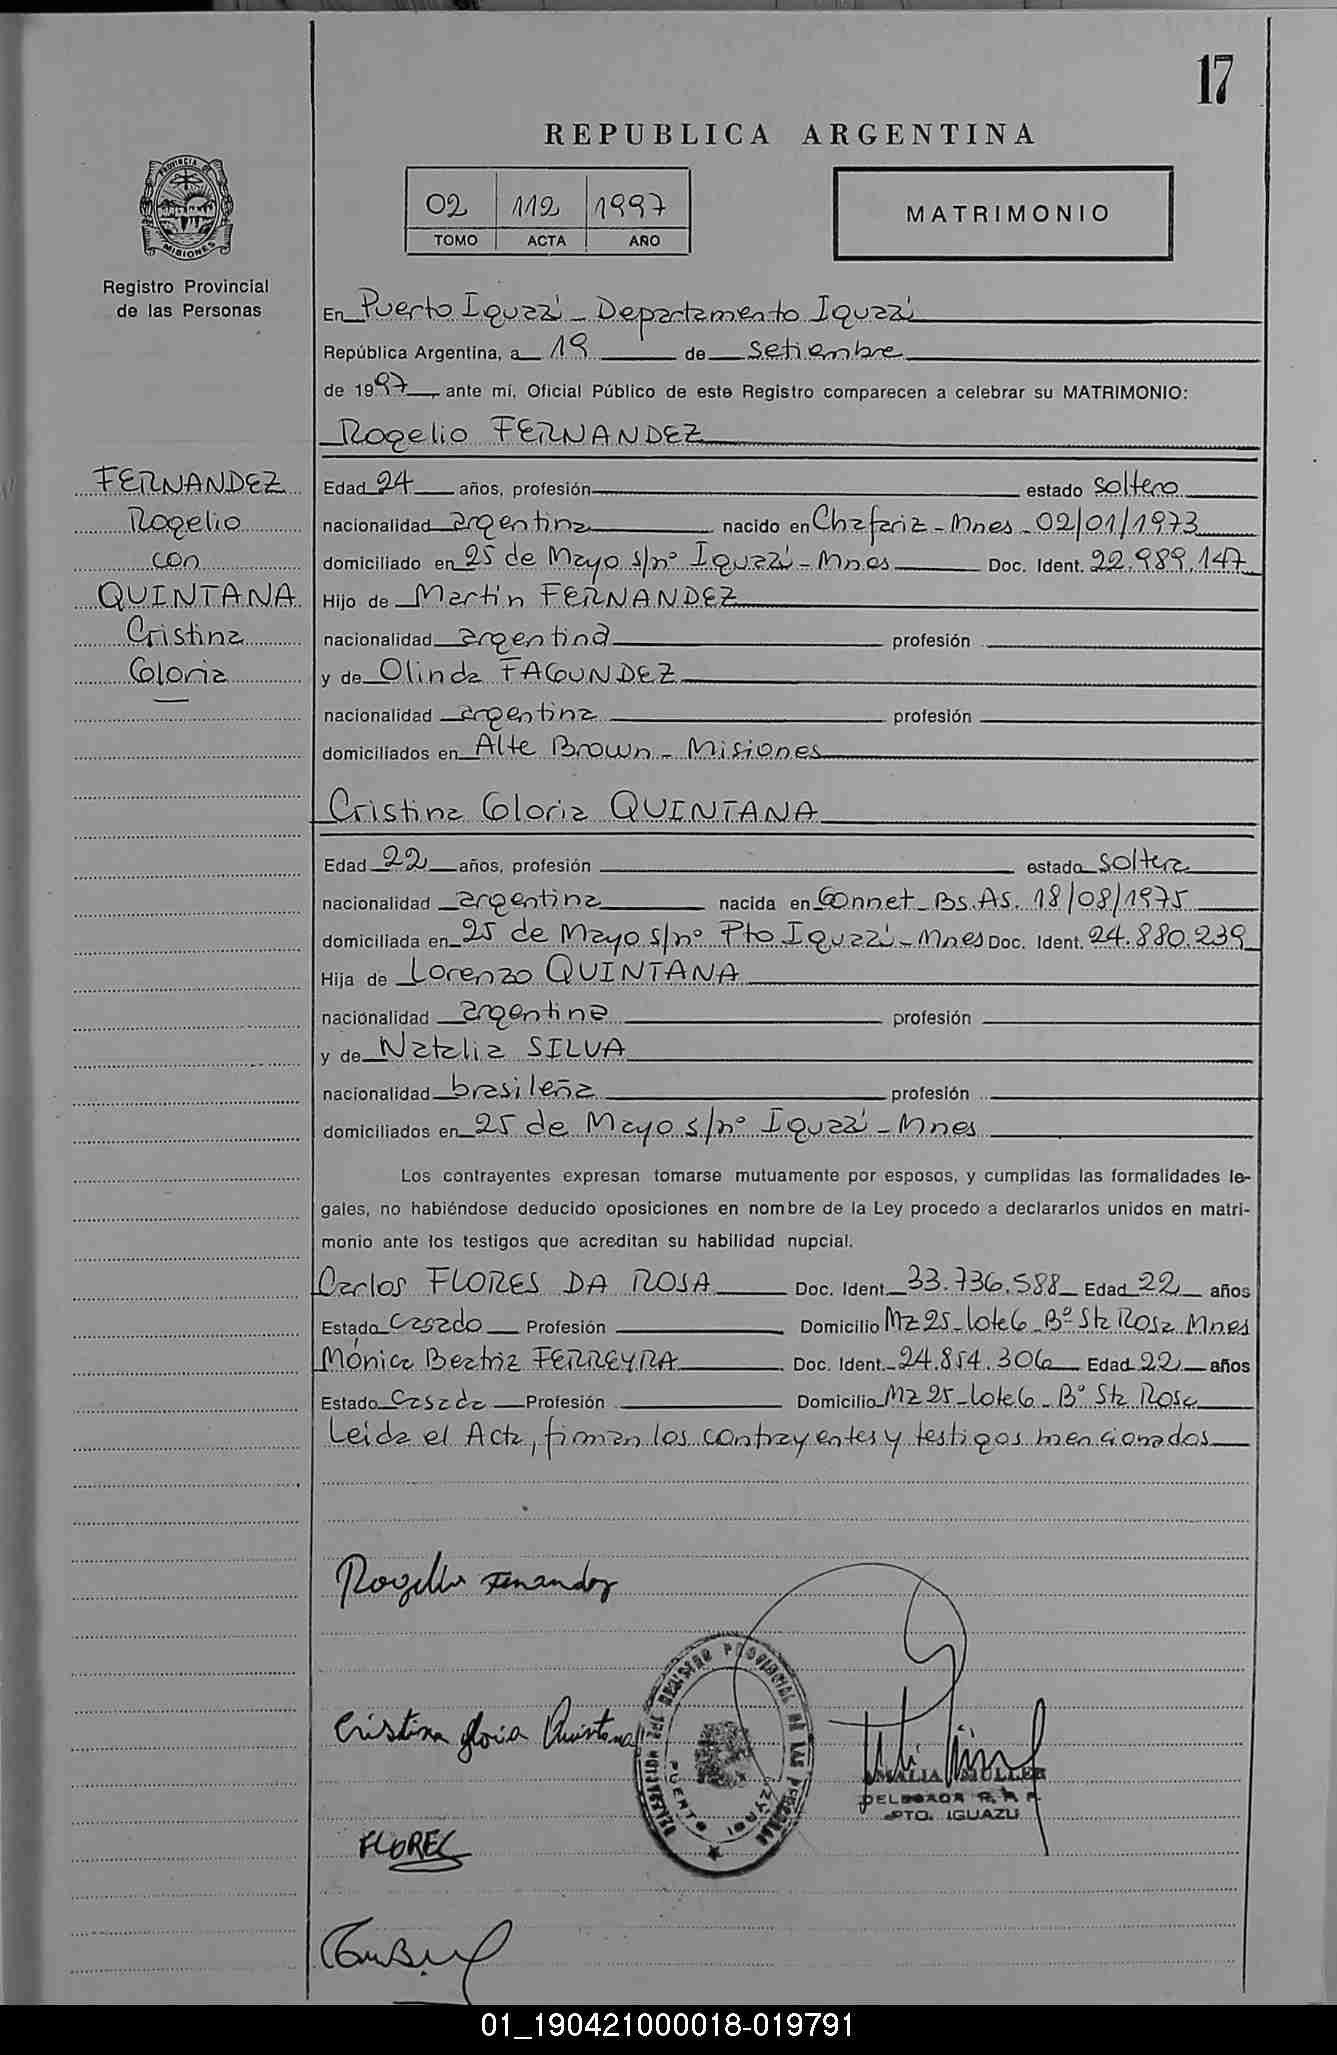 17
REPUBLICA ARGENTINA
PROVINCIA DE
MISIONES
Registro Provincial
de las Personas
02 112 1997
TOMO ACTA AÑO
MATRIMONIO
En Puerto Iguazú - Departamento Iguazú
República Argentina, a 19 de Setiembre
de 1997, ante mí, Oficial Público de este Registro comparecen a celebrar su MATRIMONIO:
Rogelio FERNANDEZ
FERNANDEZ
Rogelio
con
QUINTANA
Cristina
Gloria
Edad 24 años, profesión estado soltero
nacionalidad argentina nacido en Chafariz - Mnes - 02/01/1973
domiciliado en 25 de Mayo s/nº Iguazú - Mnes Doc. Ident. 22.989.147
Hijo de Martin FERNANDEZ
nacionalidad argentina profesión
y de Olinda FAGUNDEZ
nacionalidad argentina profesión
domiciliados en Alte Brown - Misiones
Cristina Gloria QUINTANA
Edad 22 años, profesión estado soltera
nacionalidad argentina nacida en Gonnet - Bs.As. 18/08/1975
domiciliada en 25 de Mayo s/nº Pto Iguazú - Mnes Doc. Ident. 24.880.239
Hija de Lorenzo QUINTANA
nacionalidad argentina profesión
y de Natalia SILVA
nacionalidad brasileña profesión
domiciliados en 25 de Mayo s/nº Iguazú - Mnes
Los contrayentes expresan tomarse mutuamente por esposos, y cumplidas las formalidades le-
gales, no habiéndose deducido oposiciones en nombre de la Ley procedo a declararlos unidos en matri-
monio ante los testigos que acreditan su habilidad nupcial.
Carlos FLORES DA ROSA Doc. Ident. 33.736.588 Edad 22 años
Estado casado Profesión Domicilio Mz 25 - lote 6 - Bº Sta Rosa Mnes
Mónica Beatriz FERREYRA Doc. Ident. 24.854.306 Edad 22 años
Estado casada Profesión Domicilio Mz 25 - lote 6 - Bº Sta Rosa
Leida el Acta, firman los contrayentes y testigos mencionados
Rogelio Fernandez
Cristina gloria Quintana
REGISTRO PROVINCIAL DE LAS PERSONAS
PUERTO IGUAZU
AMALIA MULLER
DELEGADA R. P. P.
PTO. IGUAZU
FLORES
01_190421000018-019791